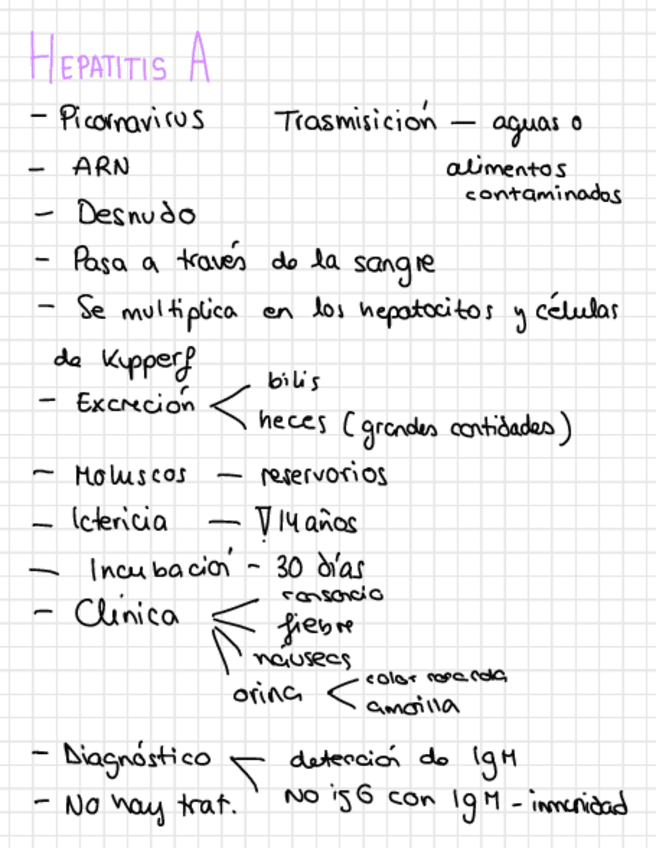 HEPATITIS A
- Picornavirus Trasmisición - aguas o
alimentos
contaminados
- ARN
- Desnudo
- Pasa a través de la sangre
- Se multiplica en los hepatocitos y células
de Kupperf
- Excreción bilis
heces (grandes contidades)
- Moluscos - reservorios
- Ictericia - 14 años
- Incubación - 30 días
- Clínica
fiebre
náuseas
orina color
amarilla
- Diagnóstico detección de IgM
- No hay trat. No isG con IgM - inmunidad